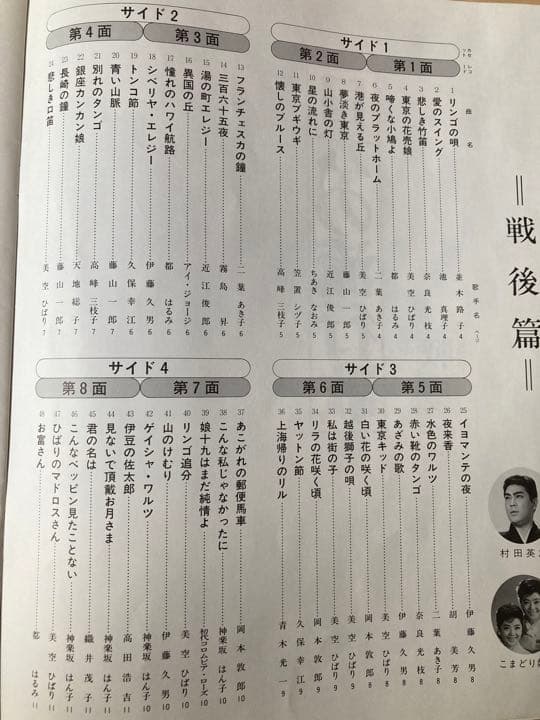 =戦後篇=
村田英
こまどり姉
サイド1
カセット
レコード
第1面
第2面
曲名
歌手名
ページ
1 リンゴの唄 並木路子 4
2 愛のスイング 池真理子 4
3 悲しき竹笛 奈良光枝 4
4 東京の花売娘 美空ひばり 4
5 啼くな小鳩よ 都はるみ 4
6 夜のプラットホーム 二葉あき子 5
7 港が見える丘 美空ひばり 5
8 夢淡き東京 藤山一郎 5
9 山小舎の灯 近江俊郎 5
10 星の流れに ちあきなおみ 5
11 東京ブギウギ 笠置シヅ子 5
12 懐しのブルース 高峰三枝子 5
サイド2
第3面
第4面
13 フランチェスカの鐘 二葉あき子 6
14 三百六十五夜 霧島昇 6
15 湯の町エレジー 近江俊郎 6
16 異国の丘 アイ・ジョージ 6
17 憧れのハワイ航路 都はるみ 6
18 シベリヤ・エレジー 伊藤久男 6
19 トンコ節 久保幸江 6
20 青い山脈 藤山一郎 7
21 別れのタンゴ 高峰三枝子 7
22 銀座カンカン娘 天地総子 7
23 長崎の鐘 藤山一郎 7
24 悲しき口笛 美空ひばり 7
サイド3
第5面
第6面
25 イヨマンテの夜 伊藤久男 8
26 夜来香 胡美芳 8
27 水色のワルツ 二葉あき子 8
28 赤い靴のタンゴ 奈良光枝 8
29 あざみの歌 伊藤久男 8
30 東京キッド 美空ひばり 8
31 白い花の咲く頃 岡本敦郎 8
32 越後獅子の唄 美空ひばり 8
33 私は街の子 美空ひばり 9
34 リラの花咲く頃 岡本敦郎 9
35 ヤットン節 久保幸江 9
36 上海帰りのリル 青木光一 9
サイド4
第7面
第8面
37 あこがれの郵便馬車 岡本敦郎 10
38 こんな私じゃなかったに 神楽坂はん子 10
39 娘十九はまだ純情よ 初代コロムビア・ローズ 10
40 リンゴ追分 美空ひばり 10
41 山のけむり 伊藤久男 10
42 ゲイシャ・ワルツ 神楽坂はん子 10
43 伊豆の佐太郎 高田浩吉 10
44 見ないで頂戴お月さま 神楽坂はん子 11
45 君の名は 織井茂子 11
46 こんなベッピン見たことない 神楽坂はん子 11
47 ひばりのマドロスさん 美空ひばり 11
48 お富さん 都はるみ 11